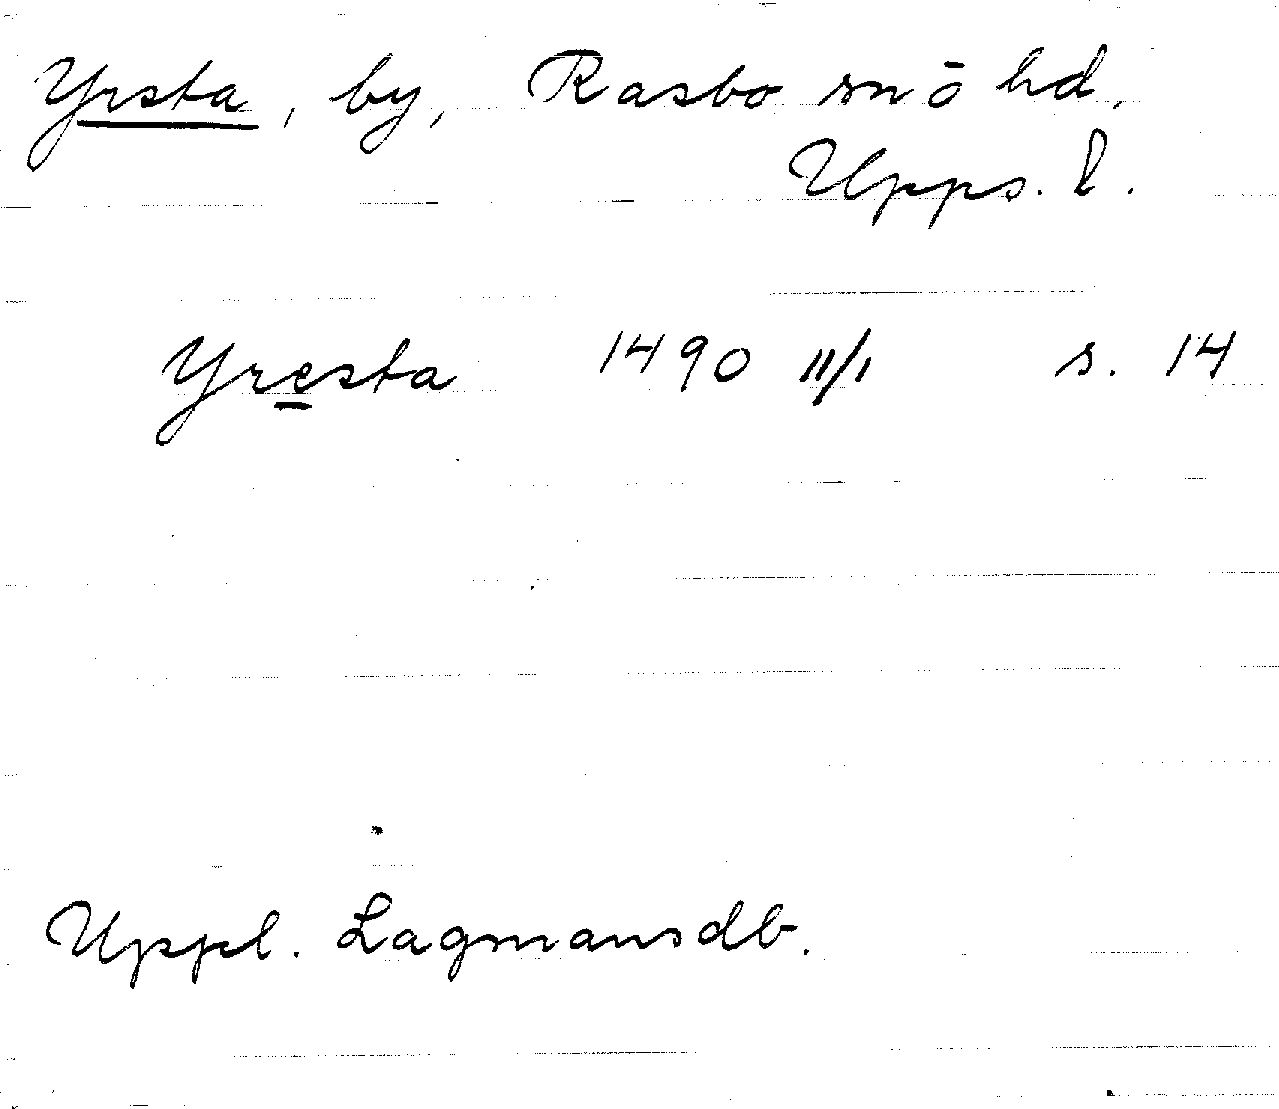 Yrsta, by, Rasbo sn o hd,
Upps. l.
Yresta 1490 11/1 s. 14
Uppl. Lagmansdb.